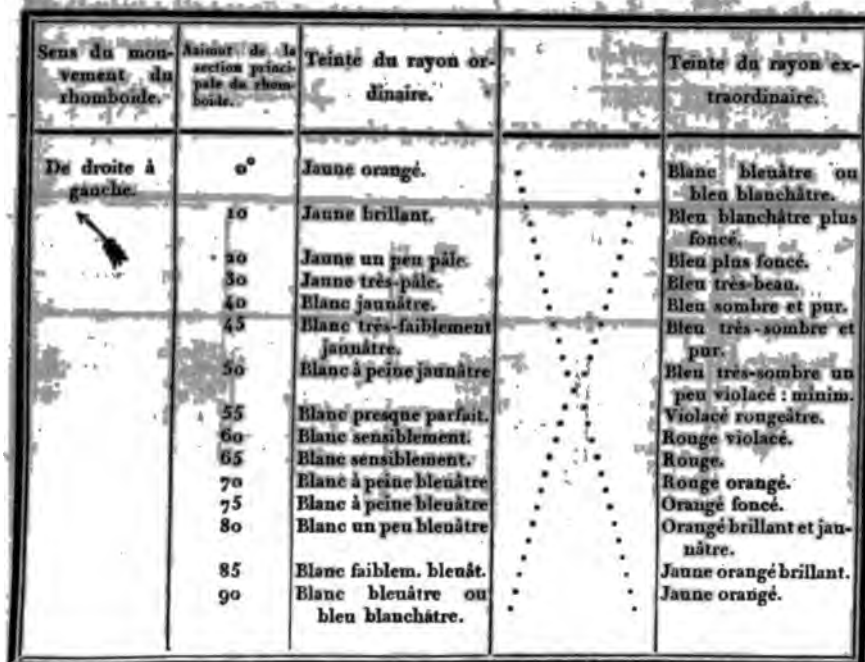 Sens du mou-
vement du
rhomboïde.
Azimut de la
section princi-
pale du rhom-
boïde.
Teinte du rayon or-
dinaire.
Teinte du rayon ex-
traordinaire.
De droite à
gauche.
0° Jaune orangé. Blanc bleuâtre ou
bleu blanchâtre.
10 Jaune brillant. Bleu blanchâtre plus
foncé.
20 Jaune un peu pâle. Bleu plus foncé.
30 Jaune très-pâle. Bleu très-beau.
40 Blanc jaunâtre. Bleu sombre et pur.
45 Blanc très-faiblement Bleu très-sombre et
jaunâtre. pur.
50 Blanc à peine jaunâtre Bleu très-sombre un
peu violacé : minim.
55 Blanc presque parfait. Violacé rougeâtre.
60 Blanc sensiblement. Rouge violacé.
65 Blanc sensiblement. Rouge.
70 Blanc à peine bleuâtre Rouge orangé.
75 Blanc à peine bleuâtre Orangé foncé.
80 Blanc un peu bleuâtre Orangé brillant et jau-
nâtre.
85 Blanc faiblem. bleuât. Jaune orangé brillant.
90 Blanc bleuâtre ou Jaune orangé.
bleu blanchâtre.